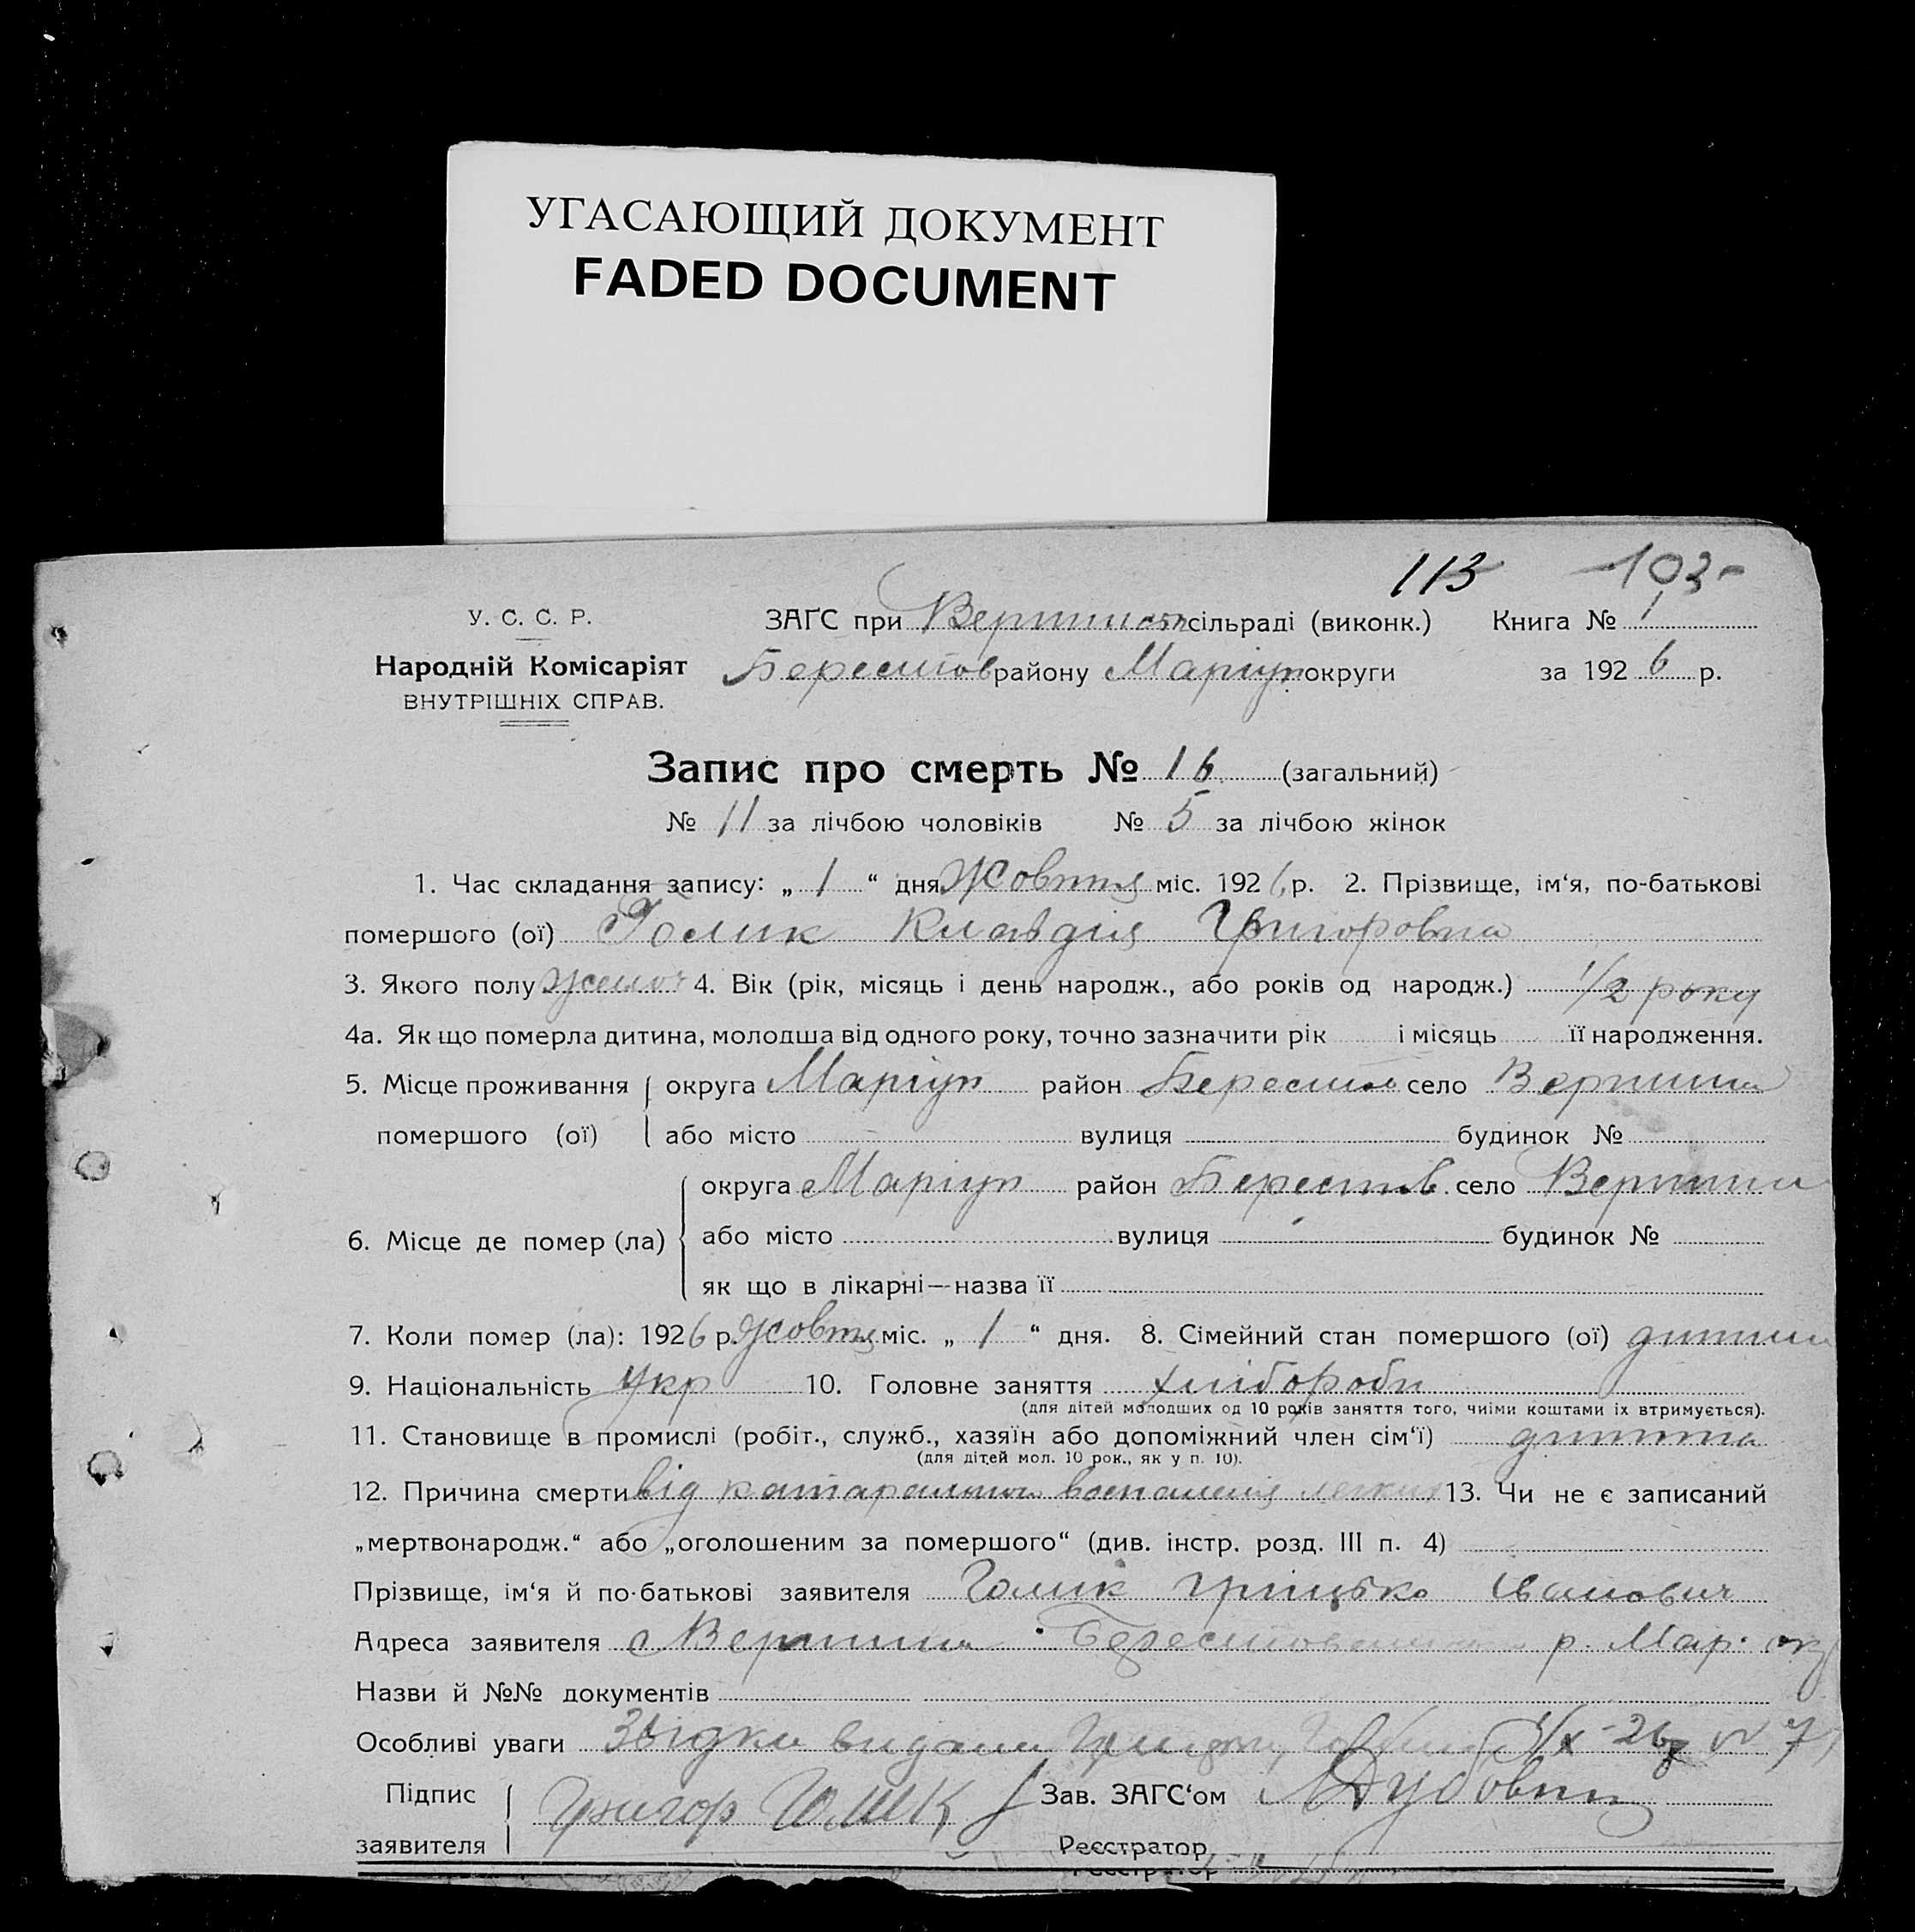 УГАСАЮЩИЙ ДОКУМЕНТ
FADED DOCUMENT
113 103
У. С. С. Р. ЗАГС при сільраді (виконк.) Книга № 1
Народній Комісаріят Берестов району Маріуп округи за 1926 р.
ВНУТРІШНІХ СПРАВ.
Запис про смерть № 16 (загальний)
№ 11 за лічбою чоловіків № 5 за лічбою жінок
1. Час складання запису: „ 1 “ дня Жовтня міс. 1926 р. 2. Прізвище, ім‘я, по-батькові
помершого (ої) Голик Клавдия Григоровна
3. Якого полу 4. Вік (рік, місяць і день народж., або років од народж.) 1/2 року
4а. Як що померла дитина, молодша від одного року, точно зазначити рік і місяць її народження.
5. Місце проживання округа Маріуп район Берестов село Вершина
помершого (ої) або місто вулиця будинок №
округа Маріуп район Берестов село Вершина
6. Місце де помер (ла) або місто вулиця будинок №
як що в лікарні—назва її
7. Коли помер (ла): 1926 р. Жовтня міс. „ 1 “ дня. 8. Сімейний стан помершого (ої) дитина
9. Національність Укр 10. Головне заняття хлібороби
(для дітей молодших од 10 років заняття того, чиїми коштами їх втримується).
11. Становище в промислі (робіт., служб., хазяїн або допоміжний член сім‘ї) дитина
(для дітей мол. 10 рок., як у п. 10).
12. Причина смерти від воспаления легких 13. Чи не є записаний
„мертвонародж.“ або „оголошеним за помершого“ (див. інстр. розд. III п. 4)
Прізвище, ім‘я й по-батькові заявителя Голик Грицько Іванович
Адреса заявителя с Вершина р. Мар. окр
Назви й №№ документів
Особливі уваги видани № 7
Підпис Григор Голик Зав. ЗАГС‘ом
заявителя Реєстратор